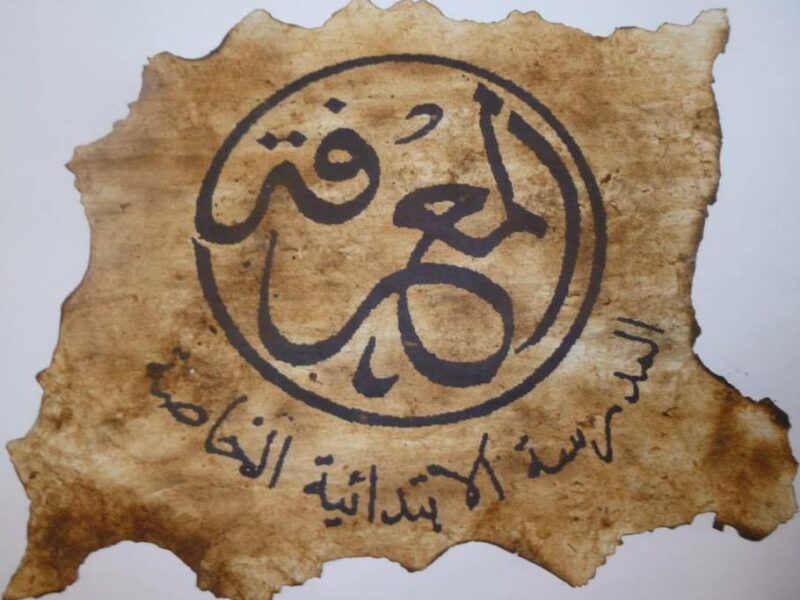 المعرفة
المدرسة الابتدائية الخاصة